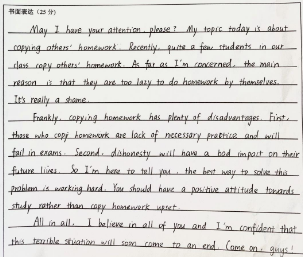 书面表达（25分）
May I have your attention, please? My topic today is about
copying others' homework. Recently, quite a few students in our
class copy others' homework. As far as I'm concerned, the main
reason is that they are too lazy to do homework by themselves.
It's really a shame.
Frankly, copying homework has plenty of disadvantages. First,
those who copy homework are lack of necessary practice and will
fail in exams. Second, dishonesty will have a bad impact on their
future lives. So I'm here to tell you, the best way to solve this
problem is working hard. You should have a positive attitude towards
study rather than copy homework
All in all, I believe in all of you and I'm confident that
this terrible situation will soon come to an end. Come on, guys!